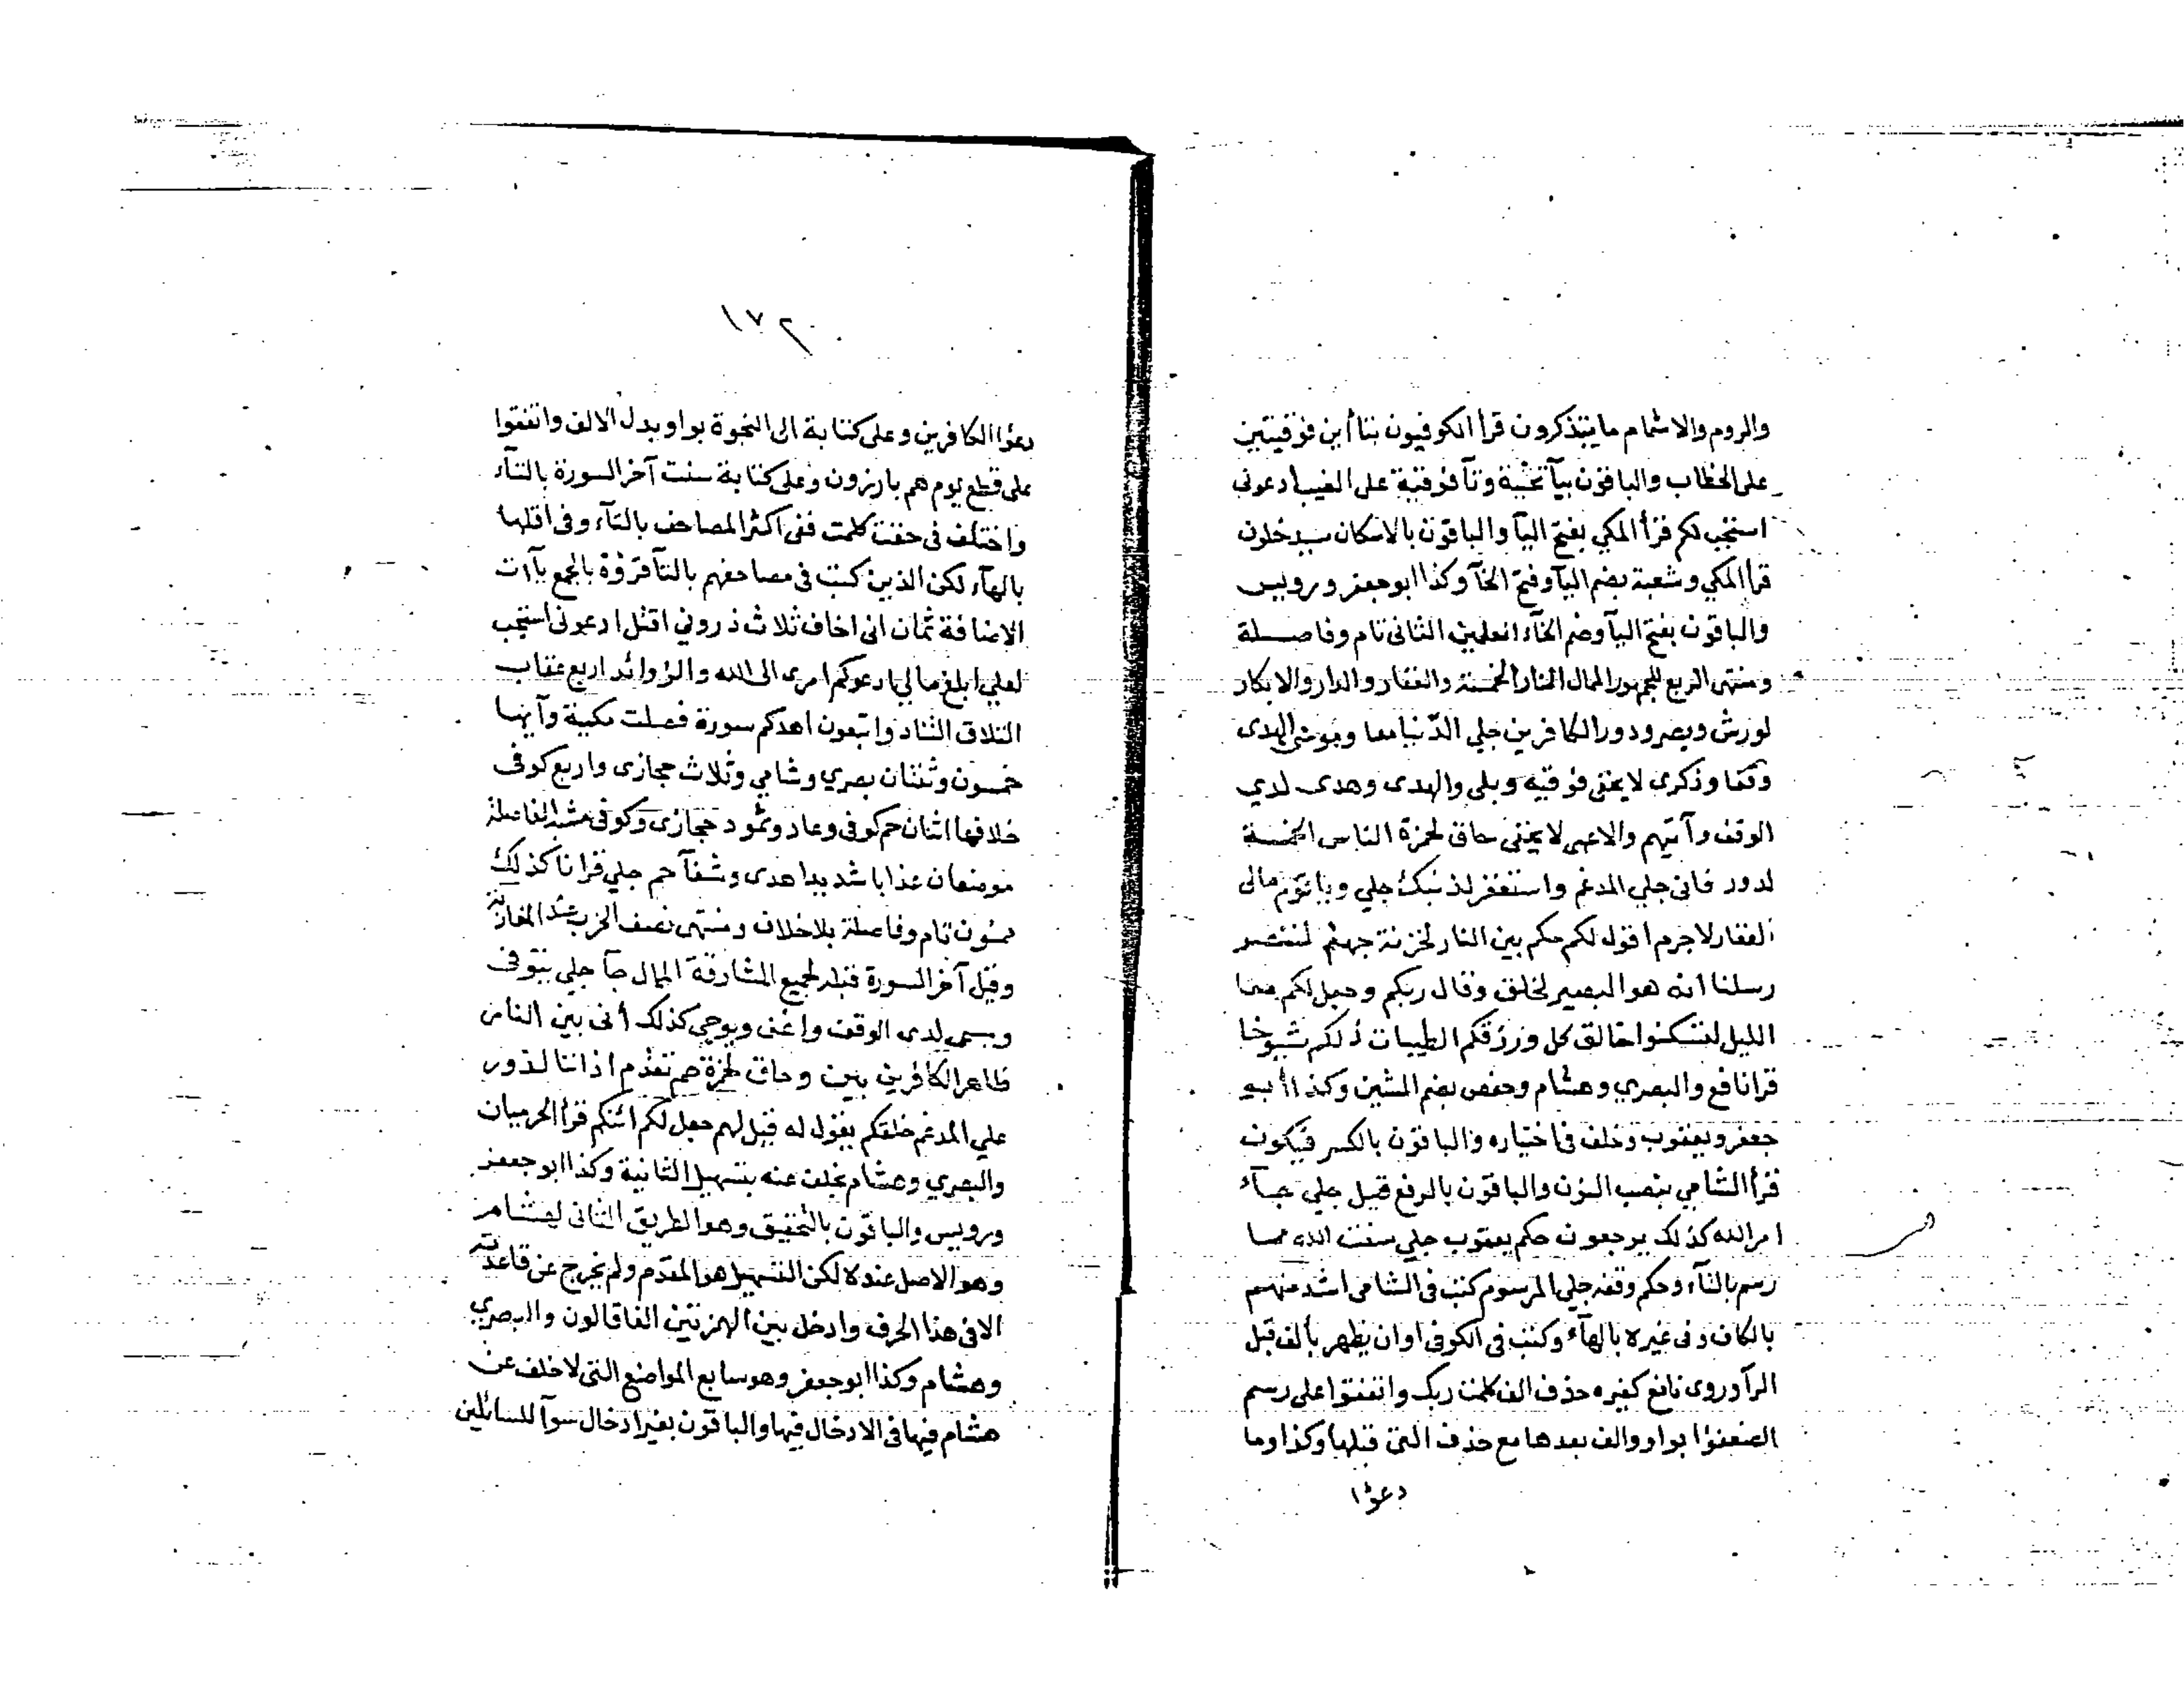 والروم والاشمام ما يتذكرون قرأ الكوفيون بتاأين فوقيتين
على الخطاب والباقون بيآ تحتية وتآ فوقية على الغيب ادعوني
استجب لكم قرأ المكي بفتح اليآ والباقون بالاسكان سيدخلون
قرأ المكي وشعبة بضم اليآ وفتح الخآ وكذا ابو جعفر ورويس
والباقون بفتح اليآ وضم الخآء العلمين الثاني تام وفاصلة
ومنتهى الربع للجمهور الممال النار الخمسة والغفار والدار والابكار
لورش وبصر ودور الكافرين جلي الدنيا معا وموسى الهدى
وقفا وذكرى لا يخفى فوقيه وبلى والهدى وهدى لدي
الوقف وآتيهم والاعمى لا يخفى حاق لحمزة الناس الخمسة
لدور فاني جلي المدغم واستغفر لذنبك جلي ويا قوم مالي
الغفار لا جرم اقول لكم حكم بين النار لخزنة جهنم لننصر
رسلنا انه هو البصير لخلق وقال ربكم وجعل لكم معا
الليل لتسكنوا خالق كل ورزقكم الطيبات ذلكم شيوخا
قرا نافع والبصري وهشام وحفص بضم الشين وكذا أبو
جعفر ويعقوب وخلف في اختياره والباقون بالكسر فيكون
قرأ الشامي بنصب النون والباقون بالرفع قيل جلي جآء
امر الله كذلك يرجعون حكم يعقوب جلي سنت الله مما
رسم بالتآء وحكم وقفه جلي المرسوم كتب في الشامي اشد منهم
بالكاف وفي غيره بالهآء وكتب في الكوفي او ان يظهر بألف قبل
الرآ وروى نافع كغيره حذف الف كلمت ربك واتفقوا على رسم
الضعفؤا بواو والف بعدها مع حذف التي قبلها وكذا وما
دعؤا
١٧٢
دعؤا الكافرين وعلى كتابة الى النجوة بواو بدل الالف واتفقوا
على قطع يوم هم بارزون وعلى كتابة سنت آخر السورة بالتآء
واختلف في حقت كلمت ففي اكثر المصاحف بالتآء وفي اقلها
بالهآء لكن الذين كتبت في مصاحفهم بالتآ قرؤه بالجمع يآات
الاضافة ثمان اني اخاف ثلاث ذروني اقتل ادعوني استجب
لعلي ابلغ مالي ادعوكم امري الى الله والزوائد اربع عقاب
التلاق التناد واتبعون اهدكم سورة فصلت مكية وآيها
خمسون وثنتان بصري وشامي وثلاث حجازي واربع كوفي
خلافها اثنان حم كوفي وعاد وثمود حجازي وكوفي مشبه الفاصلة
موضعان عذابا شديدا هدى وشفآ حم جلي قرانا كذلك
ممنون تام وفاصلة بلا خلاف ومنتهى نصف الحزب عند المغاربة
وقيل آخر السورة قبله لجميع المشارقة الممال جآ جلي يتوفى
ومسمى لدى الوقف واغنى ويوحي كذلك أنى بين الناس
ظاهر الكافرين بين وحاق لحمزة حم تقدم اذاننا لدور
علي المدغم خلقكم يقول له قيل لهم جعل لكم ائنكم قرأ الحرميان
والبصري وهشام بخلف عنه بتسهيل الثانية وكذا ابو جعفر
ورويس والباقون بالتحقيق وهو الطريق الثاني لهشام
وهو الاصل عنده لكن التسهيل هو المقدم ولم يخرج عن قاعدته
الا في هذا الحرف وادخل بين الهمزتين الفا قالون والبصري
وهشام وكذا ابو جعفر وهو سابع المواضع التي لا خلف عن
هشام فيها في الادخال فيها والباقون بغير ادخال سوآ للسائلين